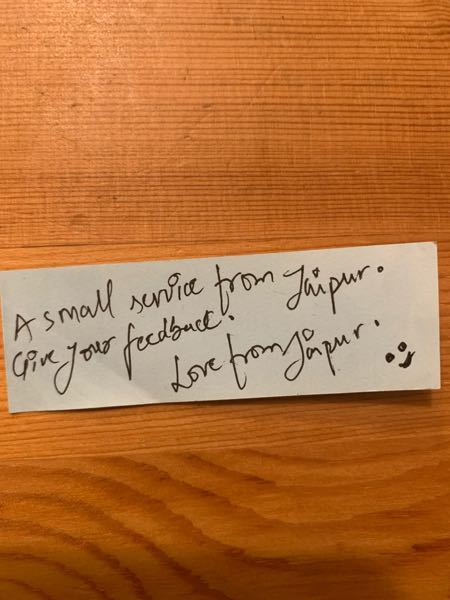 A small service from Jaipur.
Give your feedback.
Love from Jaipur.